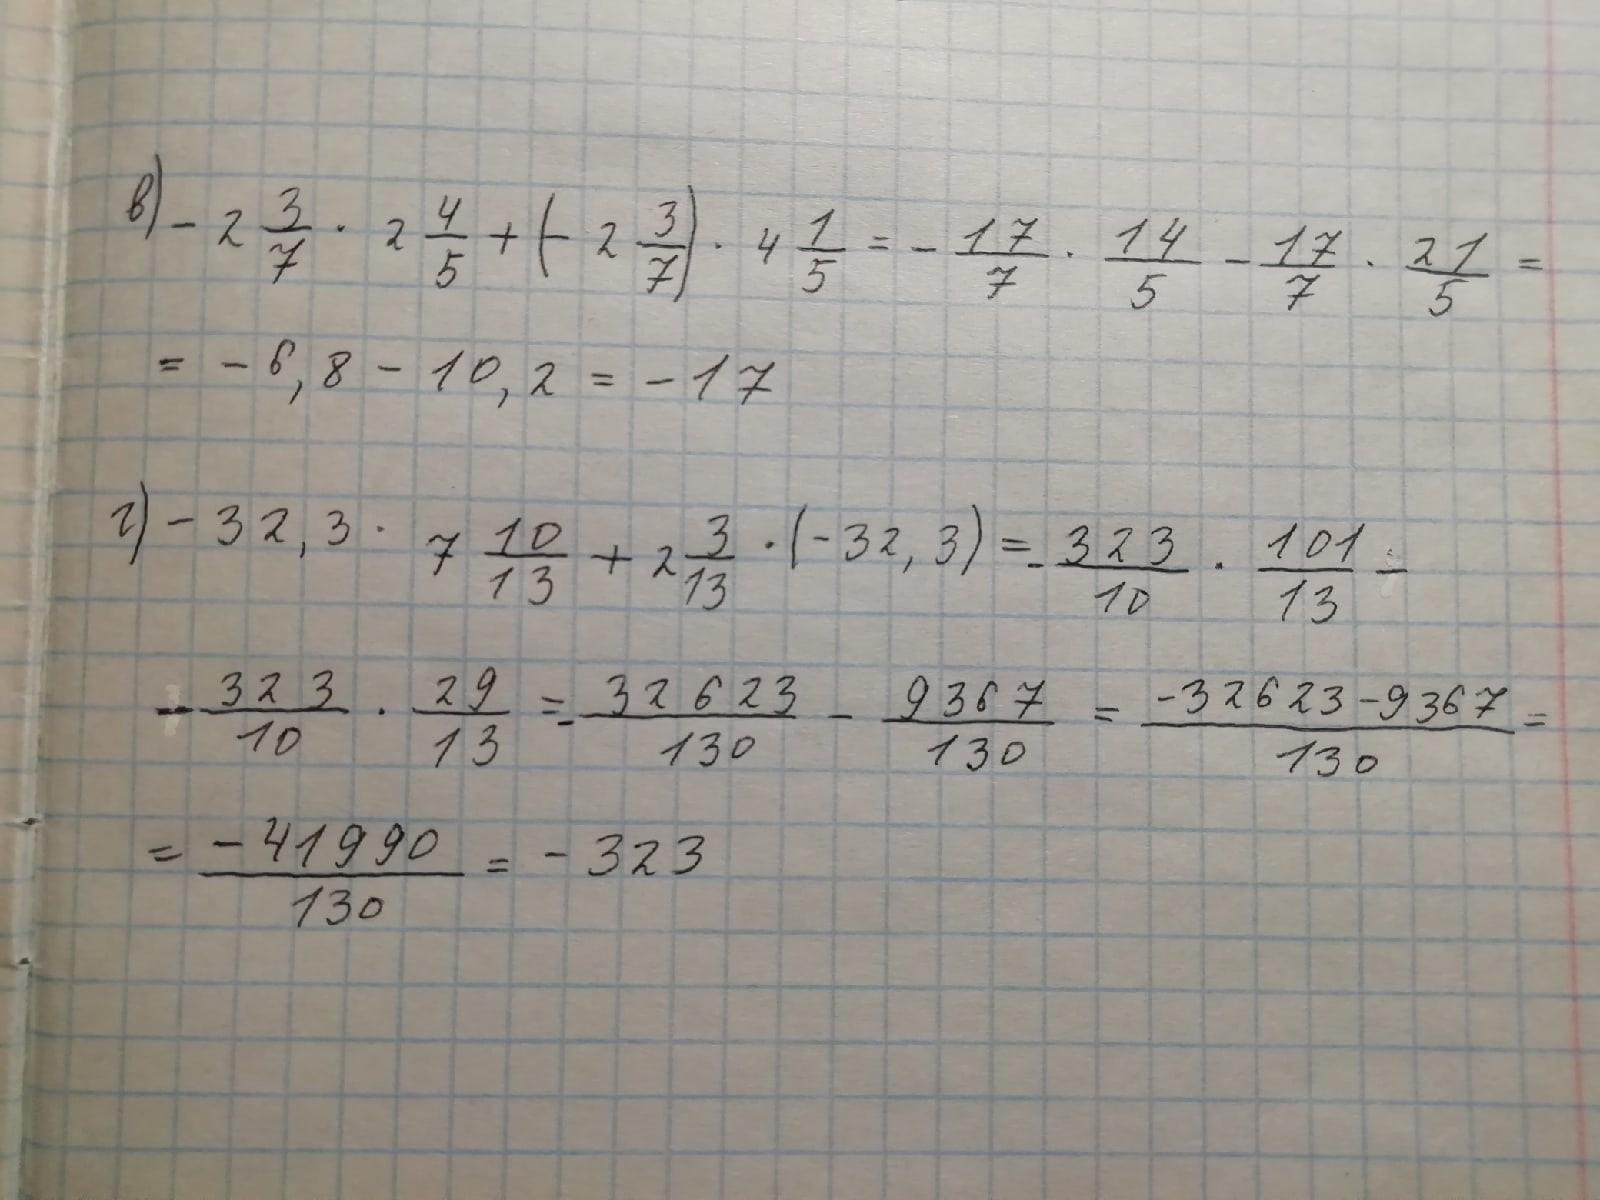 в) - 2 3/7 · 2 4/5 + (- 2 3/7) · 4 1/5 = - 17/7 · 14/5 - 17/7 · 21/5 =
= - 6,8 - 10,2 = - 17
г) - 32,3 · 7 10/13 + 2 3/13 · (- 32,3) = - 323/10 · 101/13 -
- 323/10 · 29/13 = - 32623/130 - 9367/130 = (-32623-9367)/130 =
= -41990/130 = - 323